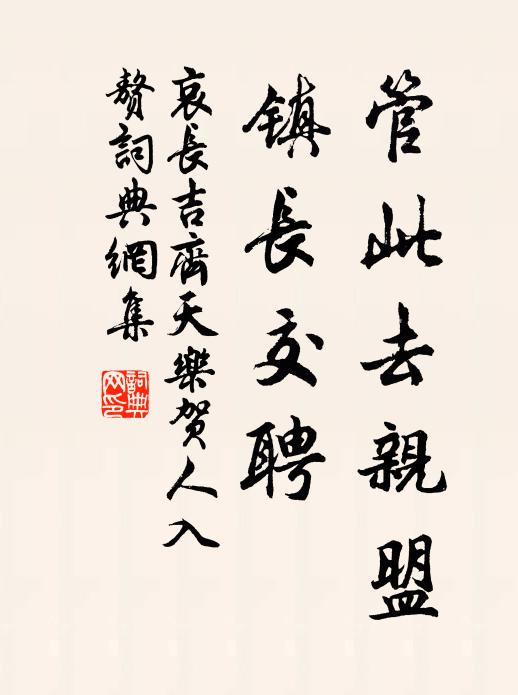 管此去親盟
鎮長交聘
哀長吉齊天樂賀人入
贅詞典網集
詞典
网印